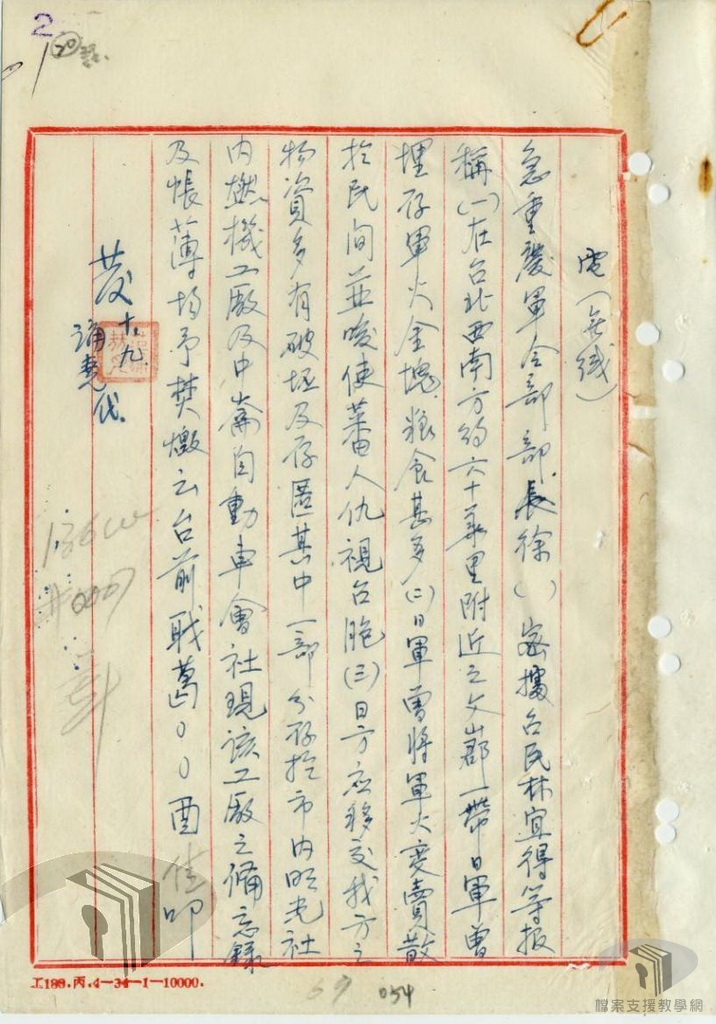 2
20
電(無線)
急重慶軍令部部長徐( )密據台民林宜得等報
稱(一)在台北西南方約六十華里附近之文山郡一帶日軍曾
埋存軍火金塊粮食甚多(二)日軍曾將軍火变賣散
於民间並唆使蕃人仇視台胞(三)日方应移交我方之
物資多有破坯及存匿其中一部分存於市内明光社
内燃機工廠及中崙自動車會社現該工廠之備忘錄
及帳薄均予焚燬云台前職葛〇〇酉佳叩
发十、九
代
1360
#0007
工188.丙.4—34—1—10000.
69
054
檔案支援教學網